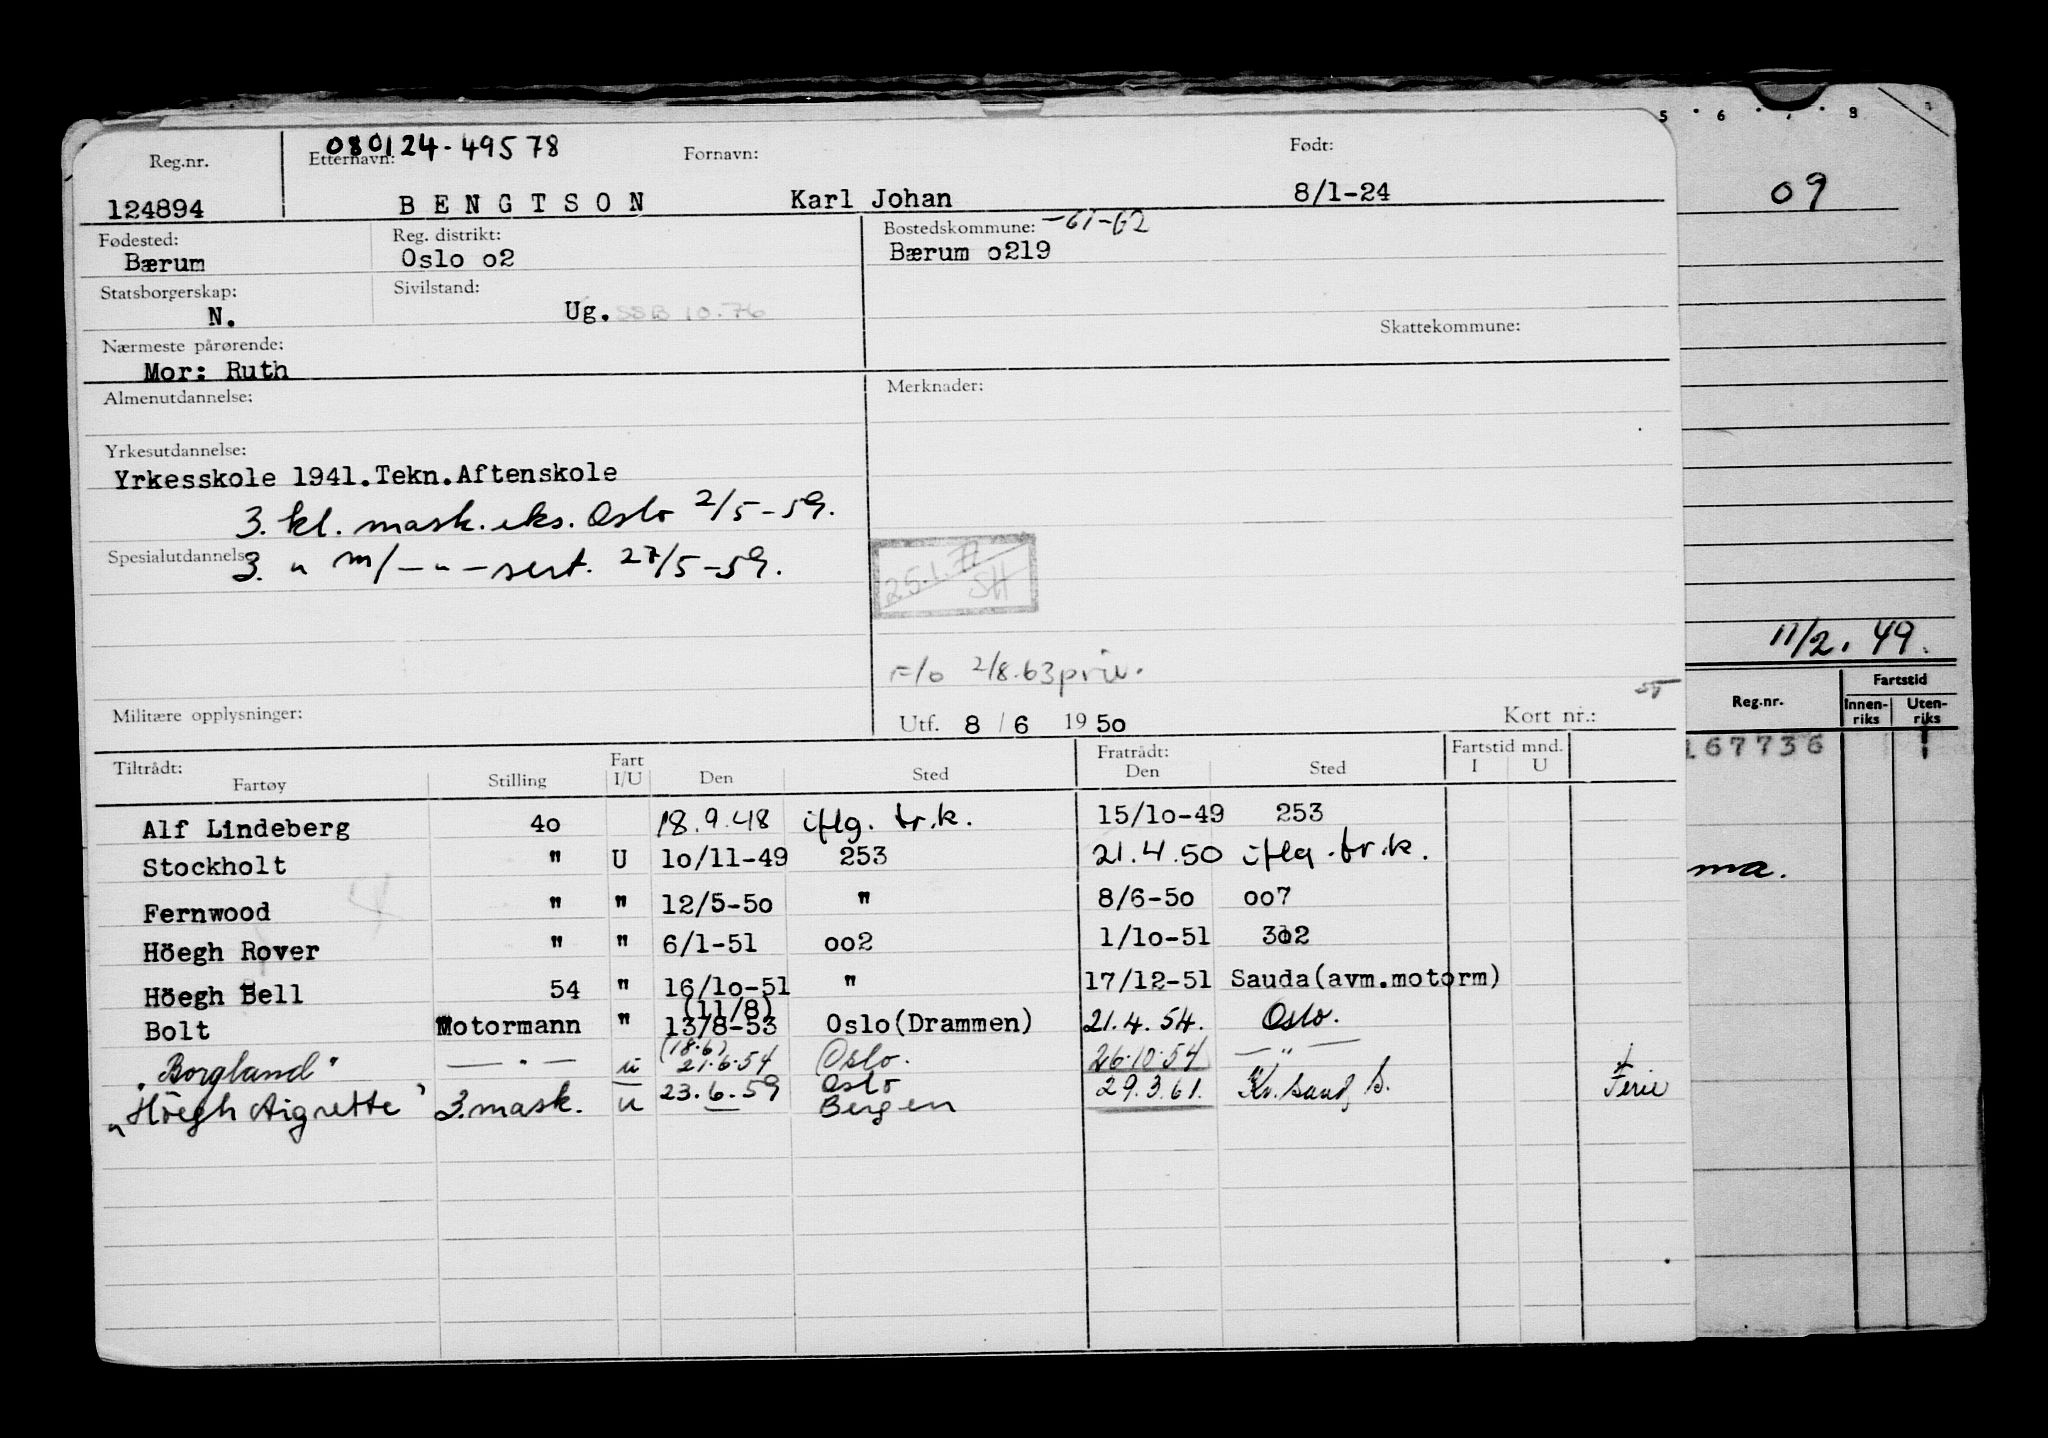 080124-49578
Reg.nr. Etternavn: Fornavn: Født:
124894 BENGTSON Karl Johan 8/1-24
Fødested: Reg. distrikt: Bostedskommune: -61-62
Bærum Oslo o2 Bærum o219
Statsborgerskap: Sivilstand:
N. Ug. SSB 10.76
Skattekommune:
Nærmeste pårørende:
Mor: Ruth
Almenutdannelse: Merknader:
Yrkesutdannelse:
Yrkesskole 1941.Tekn.Aftenskole
3. kl. mask.eks. Oslo 2/5-59.
Spesialutdannelse
3. " m/-"-sert. 27/5-59.
25.1.77
SH
F/o 2/8.63 priv.
Militære opplysninger: Utf. 8/6 1950 Kort nr.:
Tiltrådt: Fart Fratrådt: Fartstid mnd.
Fartøy Stilling I/U Den Sted Den Sted I U
Alf Lindeberg 4o 18.9.48 iflg. tr.k. 15/1o-49 253
Stockholt " U 1o/11-49 253 21.4.50 iflg.tr.k.
Fernwood " " 12/5-5o " 8/6-5o oo7
Höegh Rover " " 6/1-51 oo2 1/1o-51 312
Höegh Bell 54 " 16/1o-51 " 17/12-51 Sauda(avm.motorm)
(11/8)
Bolt Motormann " 13/8-53 Oslo(Drammen) 21.4.54. Oslo.
(18.6)
"Borgland" -"- u 21.6.54 Oslo. 26.10.54 -"-
Oslo
"Höegh Aigrette" 3.mask. u 23.6.59 Bergen 29.3.61. Kr.sand S. Ferie
5 · 6 · 7 · 8
09
11/2.49.
Reg.nr. Fartstid
Innen-riks Uten-riks
167736 1
ma.